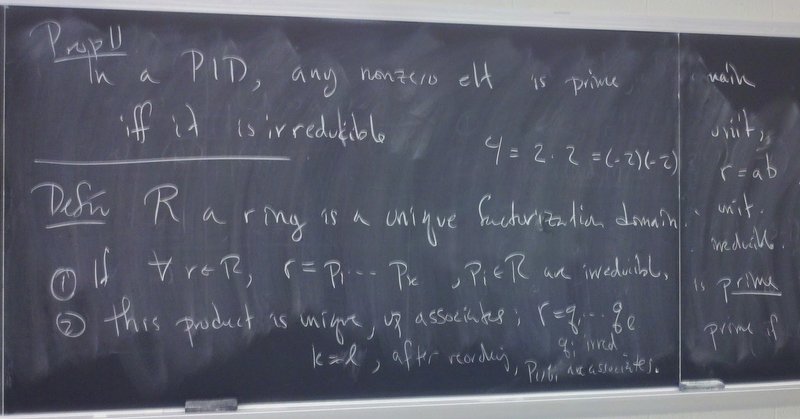 Prop 11
In a PID, any nonzero elt is prime
iff it is irreducible
4 = 2 · 2 = (-2)(-2)
Defn R a ring is a unique factorization domain.
① If ∀ r ∈ R, r = p₁ ... pₖ , pᵢ ∈ R are irreducible,
② this product is unique, associates; r = q₁ ... qₗ
qᵢ irred
k = l, after reordering, pᵢ, qᵢ are associates.
unit,
r = ab
unit.
irreducible.
is prime
prime if